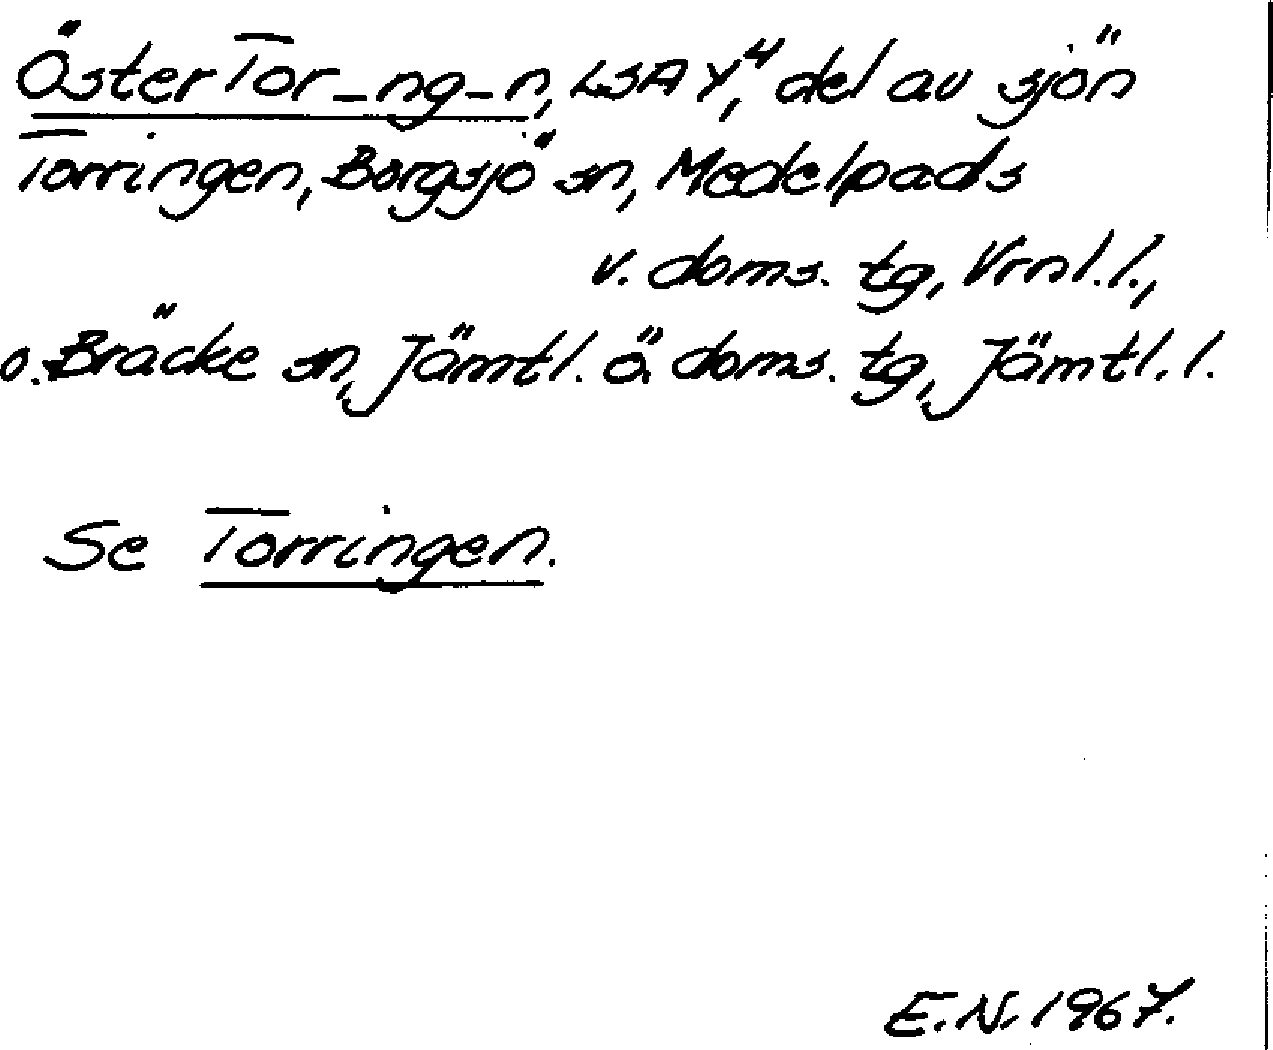 Öster Tor_ng_n, LSA Y,4 del av sjön
Torringen, Borgsjö sn, Medelpads
v. doms. tg, Vrnl. l.,
o. Bräcke sn, Jämtl. ö. doms. tg, Jämtl. l.
Se Torringen.
E.N. 1967.